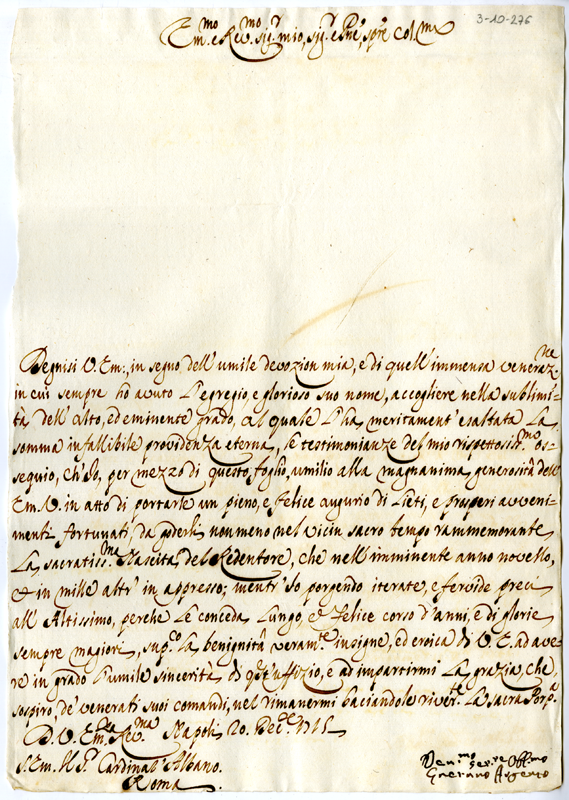 3-10-276
Em.mo e Rev.mo Sig.r mio, Sig.r e P̃ne, sp̃re Col.mo
Degnisi V. Em:, in segno dell'umile devozion mia, e di quell'immensa veneraz.ne
in cui sempre hò avuto l'egregio, e glorioso suo nome, accogliere nella sublimi-
tà dell'alto, ed eminente grado, al quale l'hà meritament'esaltata la
somma infallibile providenza eterna, le testimonianze del mio rispettosiss.mo os-
sequio, ch'Io, per mezzo di questo foglio, umilio alla magnanima generosità dell'
Em. V. in atto di portarle un pieno, e felice augurio di lieti, e prosperi avveni-
menti fortunati, da goderli nonmeno nel vicin sacro tempo rammemorante
la sacratiss.ma Nascita del Redentore, che nell'imminente anno novello,
et in mille altr'in appresso; mentr'Io porgendo iterate, e fervide preci
all'Altissimo, perche le conceda lungo, e felice corso d'anni, e di glorie
sempre magiori, sup.co la benignità veram.te insigne, ed eroica di V. E. ad ave-
re in grado l'umile sincerità di quest'uffizio, e ad impartirmi la grazia, che
sospiro, de' venerati suoi comandi, nel rimanermi baciandole river.te la sacra Porp.a
D. V. Em.za Rev.ma Napoli 20. Dec.e 1715
S. Em. Il S.r Cardinal'Albano.
Roma
Dev.mo Ser.re Oss.mo
Gaetano Argento